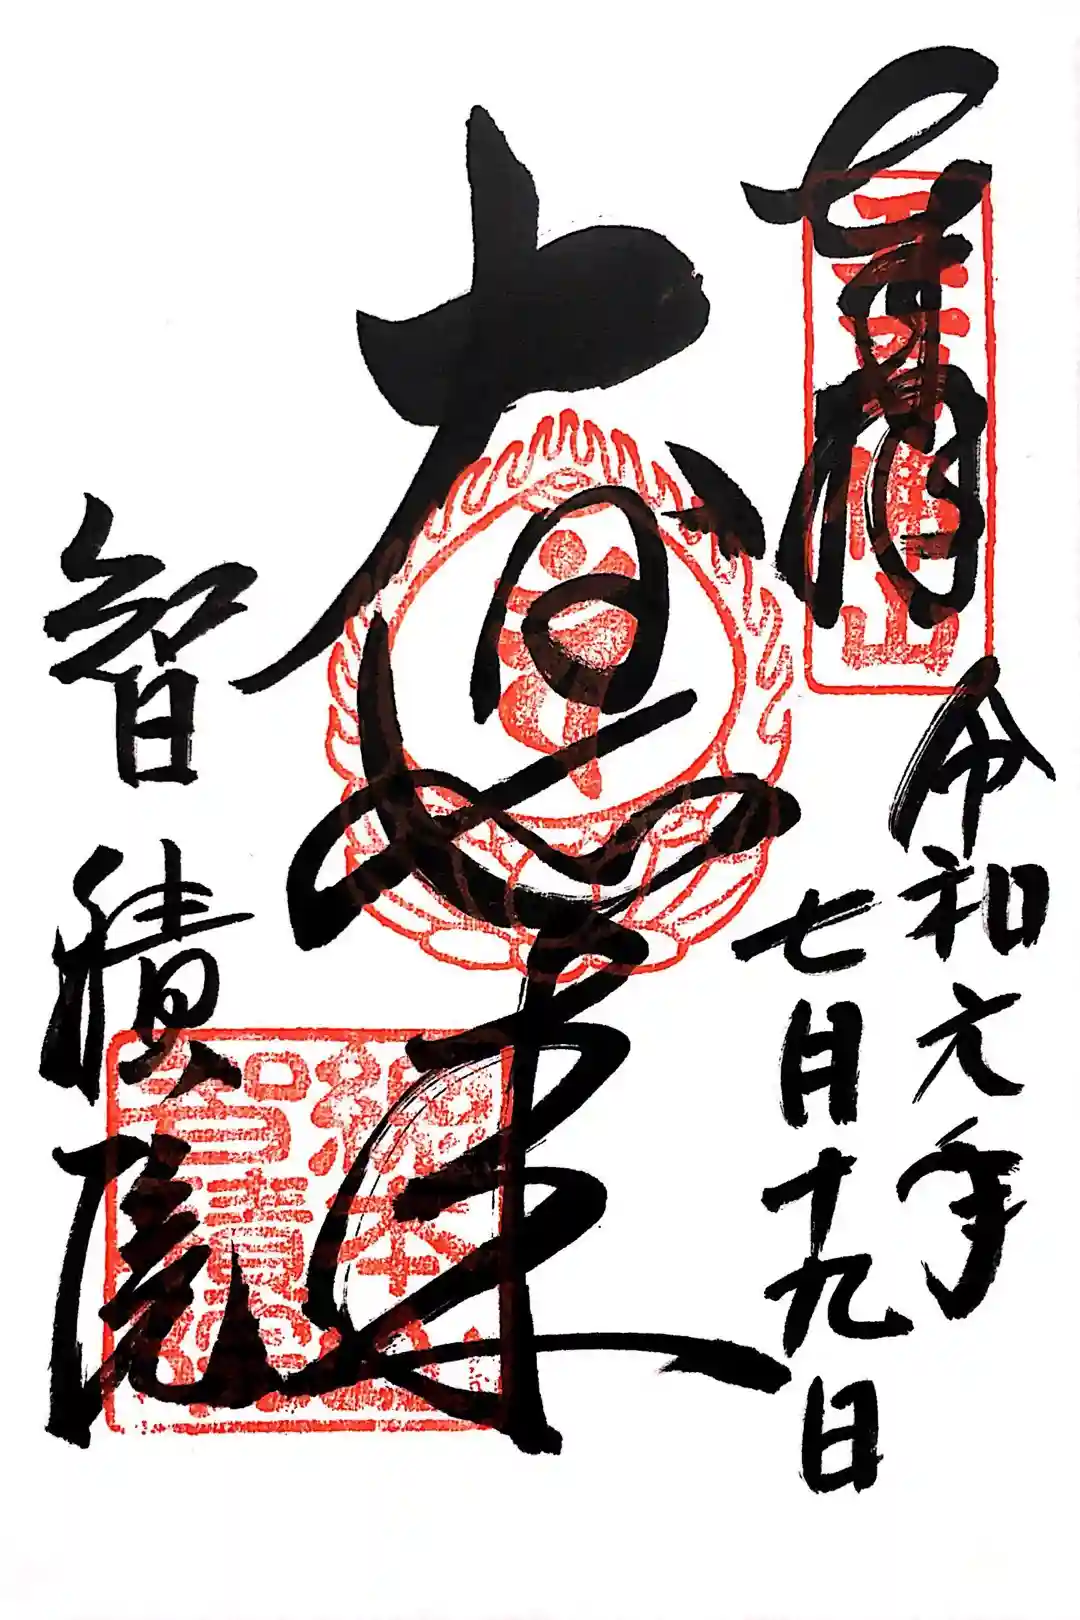 奉拝
五百佛山
令和元年
七月十九日
大日如来
智積院
總本山
智積院